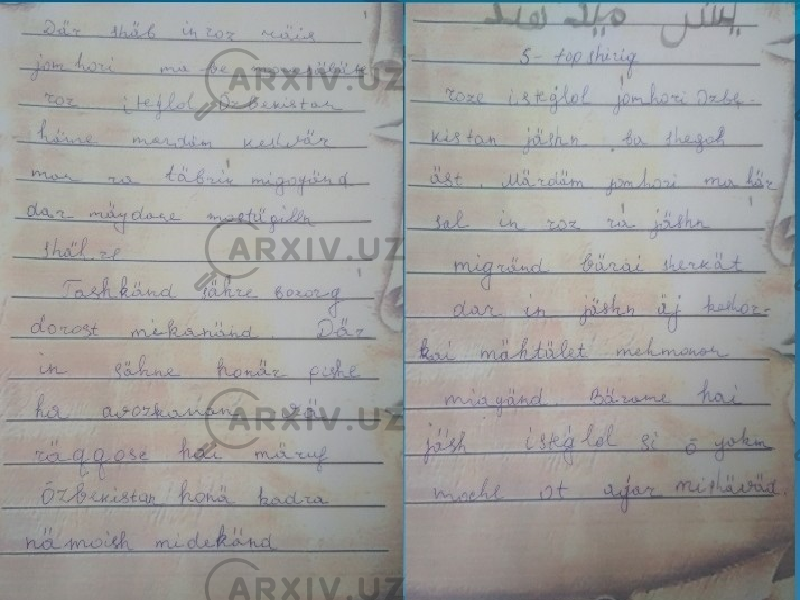 Där shäb in roz räis
jom hori ma be
roz isteflol Özbekistan
häme mardäm keshvär
mar ra täbrik migoyänd
dar mäydane mostäqillik
shäh re
Tashkänd sähne bozorg
dorost mikanänd. Där
in sähne honär pishe
ha avozkanan rä
räqqose hai märuf
Özbekistan honä kadra
nämoish midekänd
5- topshiriq
roze isteqlol jomhori Özbe-
kistan jäshn ba shegoh
äst. Märdäm jomhori ma här
sal in roz rä jäshn
migränd bärai sherkät
dar in jäshn äj keshor-
hai mähtälet mehmonon
miayänd Bärome hai
jäsh isteqlol si ö yokm
moehe ot ayar mishäväd.
ARXIV.UZ
ARXIV.UZ
ARXIV.UZ
ARXIV.UZ